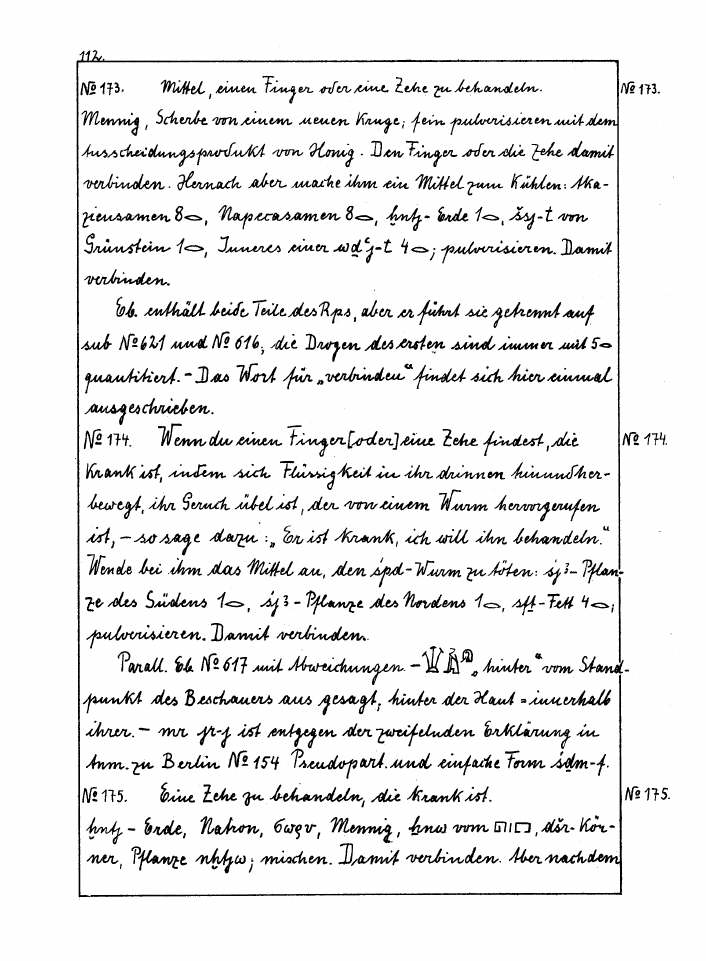 112.
№ 173. Mittel, einen Finger oder eine Zehe zu behandeln. № 173.
Mennig, Scherbe von einem neuen Kruge; fein pulverisieren mit dem
Ausscheidungsprodukt von Honig. Den Finger oder die Zehe damit
verbinden. Hernach aber mache ihm ein Mittel zum Kühlen: Aka-
ziensamen 8 𓂋, Napecasamen 8 𓂋, ḫntj- Erde 1 𓂋, šsj-t von
Grünstein 1 𓂋, Inneres einer wḏꜥj-t 4 𓂋; pulverisieren. Damit
verbinden.
Eb. enthält beide Teile des Rps, aber er führt sie getrennt auf
sub № 621 und № 616; die Drogen des ersten sind immer mit 5 𓂋
quantitiert. - Das Wort für „verbinden“ findet sich hier einmal
ausgeschrieben.
№ 174. Wenn du einen Finger [oder] eine Zehe findest, die № 174.
krank ist, indem sich Flüssigkeit in ihr drinnen hinundher-
bewegt, ihr Geruch übel ist, der von einem Wurm hervorgerufen
ist, - so sage dazu: „Er ist krank, ich will ihn behandeln.“
Wende bei ihm das Mittel an, den śpd-Wurm zu töten: śjꜣ- Pflan-
ze des Südens 1 𓂋, śjꜣ- Pflanze des Nordens 1 𓂋, sft- Fett 4 𓂋;
pulverisieren. Damit verbinden.
Parall. Eb. № 617 mit Abweichungen. - „hinter“ vom Stand-
punkt des Beschauers aus gesagt, hinter der Haut = innerhalb
ihrer. - mr jr-j ist entgegen der zweifelnden Erklärung in
Anm. zu Berlin № 154 Pseudopart. und einfache Form śḏm-f.
№ 175. Eine Zehe zu behandeln, die krank ist. № 175.
ḫntj - Erde, Natron, Mennig, ẖnw vom דוכן, dšr- Kör-
ner, Pflanze nḫtjw; mischen. Damit verbinden. Aber nachdem